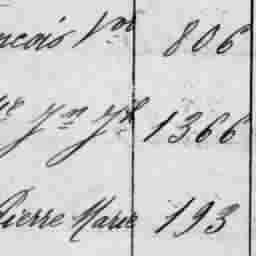 ncois Vor 806
Jn Jh 1366
Pierre Marie 193